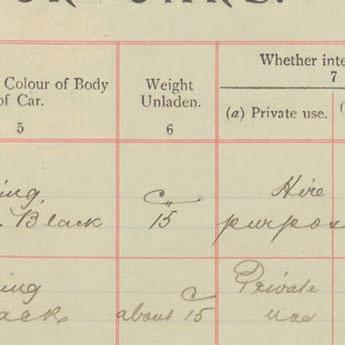 Colour of Body
of Car.
5
Weight
Unladen.
6
Whether inte
7
(a) Private use.
ing,
Black
C
15
Hire
purpos
ing
ack
about 15
C
Private
use